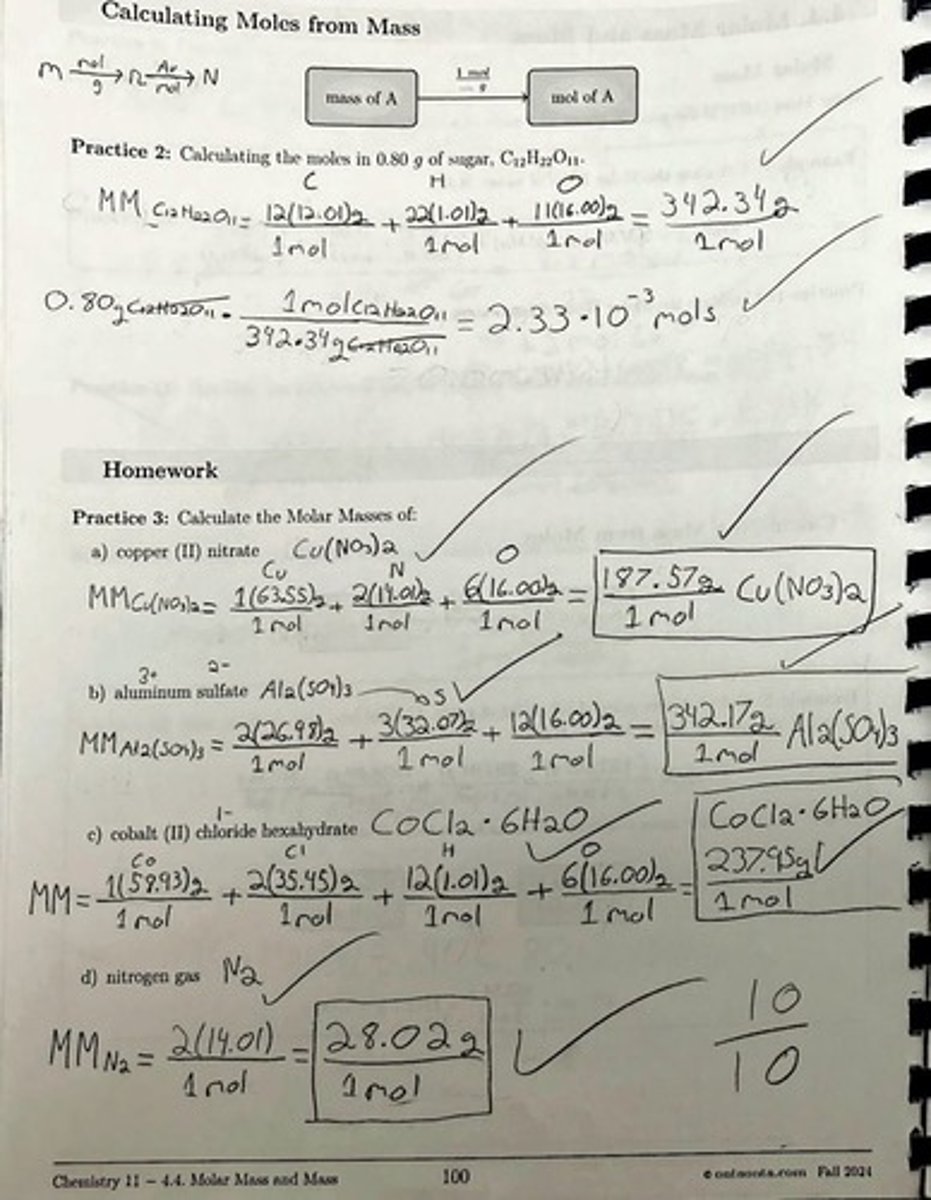 Calculating Moles from Mass
m mol/g → n Av/mol → N
mass of A 1 mol/— g → mol of A
Practice 2: Calculating the moles in 0.80 g of sugar, C₁₂H₂₂O₁₁.
C H O
MM C12H22O11 = 12(12.01)g/1mol + 22(1.01)g/1mol + 11(16.00)g/1mol = 342.34g/1mol
0.80g C12H22O11 · 1mol C12H22O11/342.34g C12H22O11 = 2.33·10⁻³ mols
Homework
Practice 3: Calculate the Molar Masses of:
a) copper (II) nitrate Cu(NO3)2
Cu N O
MM Cu(NO3)2 = 1(63.55)g/1mol + 2(14.01)g/1mol + 6(16.00)g/1mol = 187.57g/1mol Cu(NO3)2
3+ 2-
b) aluminum sulfate Al2(SO4)3
S
MM Al2(SO4)3 = 2(26.98)g/1mol + 3(32.07)g/1mol + 12(16.00)g/1mol = 342.17g/1mol Al2(SO4)3
1-
c) cobalt (II) chloride hexahydrate CoCl2 · 6H2O
Co Cl H O
MM = 1(58.93)g/1mol + 2(35.45)g/1mol + 12(1.01)g/1mol + 6(16.00)g/1mol = CoCl2·6H2O 237.95g/1mol
d) nitrogen gas N2
MM N2 = 2(14.01)/1mol = 28.02g/1mol
10/10
Chemistry 11 – 4.4. Molar Mass and Mass 100 Fall 2024